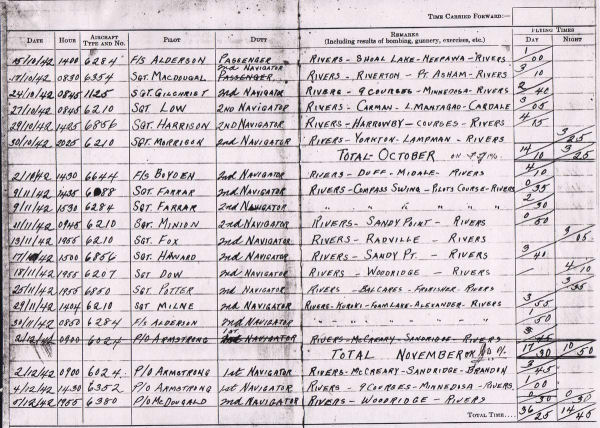 TIME CARRIED FORWARD:—
DATE HOUR AIRCRAFT TYPE AND NO. PILOT DUTY REMARKS (Including results of bombing, gunnery, exercises, etc.) FLYING TIMES DAY NIGHT
15/10/42 1400 6284 F/S ALDERSON PASSENGER RIVERS - SHOAL LAKE - NEEPAWA - RIVERS 1 00
17/10/42 0830 6354 SGT. MACDOUGAL 2nd NAVIGATOR PASSENGER RIVERS - RIVERTON - PT. ASHAM - RIVERS 3 10
24/10/42 0845 1125 SGT. GILCHRIST 2nd NAVIGATOR RIVERS - 9 COURSES - MINNEDOSA - RIVERS 2 40
27/10/42 0845 6210 SGT. LOW 2ND NAVIGATOR RIVERS - CARMAN - L. MANTAGAO - CARDALE 3 05
29/10/42 1425 6856 SGT. HARRISON 2ND NAVIGATOR RIVERS - HARROWBY - COURSES - RIVERS 4 15
30/10/42 2025 6210 SGT. MORRISON 2nd NAVIGATOR RIVERS - YORKTON - LAMPMAN - RIVERS 3 25
TOTAL OCTOBER 14 10 3 25
2/11/42 1430 6644 F/S BOYDEN 2nd NAVIGATOR RIVERS - DUFF - MIDALE - RIVERS 4 10
9/11/42 1435 6088 SGT. FARRAR 2nd NAVIGATOR RIVERS - COMPASS SWING - PILOTS COURSE - RIVERS 0 35
9/11/42 1530 6284 SGT. FARRAR 2nd NAVIGATOR " " " " " 2 30
11/11/42 0945 6210 SGT. MINION 2nd NAVIGATOR RIVERS - SANDY POINT - RIVERS 0 50
13/11/42 1955 6210 SGT. FOX 2nd NAVIGATOR RIVERS - RADVILLE - RIVERS 3 05
17/11/42 1500 6856 SGT. HANARD 2nd NAVIGATOR RIVERS - SANDY PT. - RIVERS 3 40
18/11/42 1955 6207 SGT DOW 2nd NAVIGATOR RIVERS - WOODRIDGE - RIVERS — 4 10
25/11/42 1955 6850 SGT. POTTER 2nd NAVIGATOR RIVERS - BALCARES - FROBISHER - RIVERS 3 35
29/11/42 1404 6210 SGT MILNE 2nd NAVIGATOR RIVERS - KUROKI - FOAM LAKE - ALEXANDER - RIVERS 3 55
30/11/42 0850 6284 F/S ALDERSON 2nd NAVIGATOR " " " " " 1 50
2/12/42 0900 6024 P/O ARMSTRONG 1st NAVIGATOR RIVERS - MCCREARY - SANDRIDGE - RIVERS 3 45
TOTAL NOVEMBER 17 30 10 50
2/12/42 0900 6024 P/O ARMSTRONG 1st NAVIGATOR RIVERS - MCCREARY - SANDRIDGE - BRANDON 3 45
4/12/42 1430 6352 P/O ARMSTRONG 1st NAVIGATOR RIVERS - 9 COURSES - MINNEDOSA - RIVERS 1 00
5/12/42 1955 6380 P/O MCDOUGALD 2nd NAVIGATOR RIVERS - WOODRIDGE - RIVERS 0 30 0 30
TOTAL TIME.... 36 25 14 45